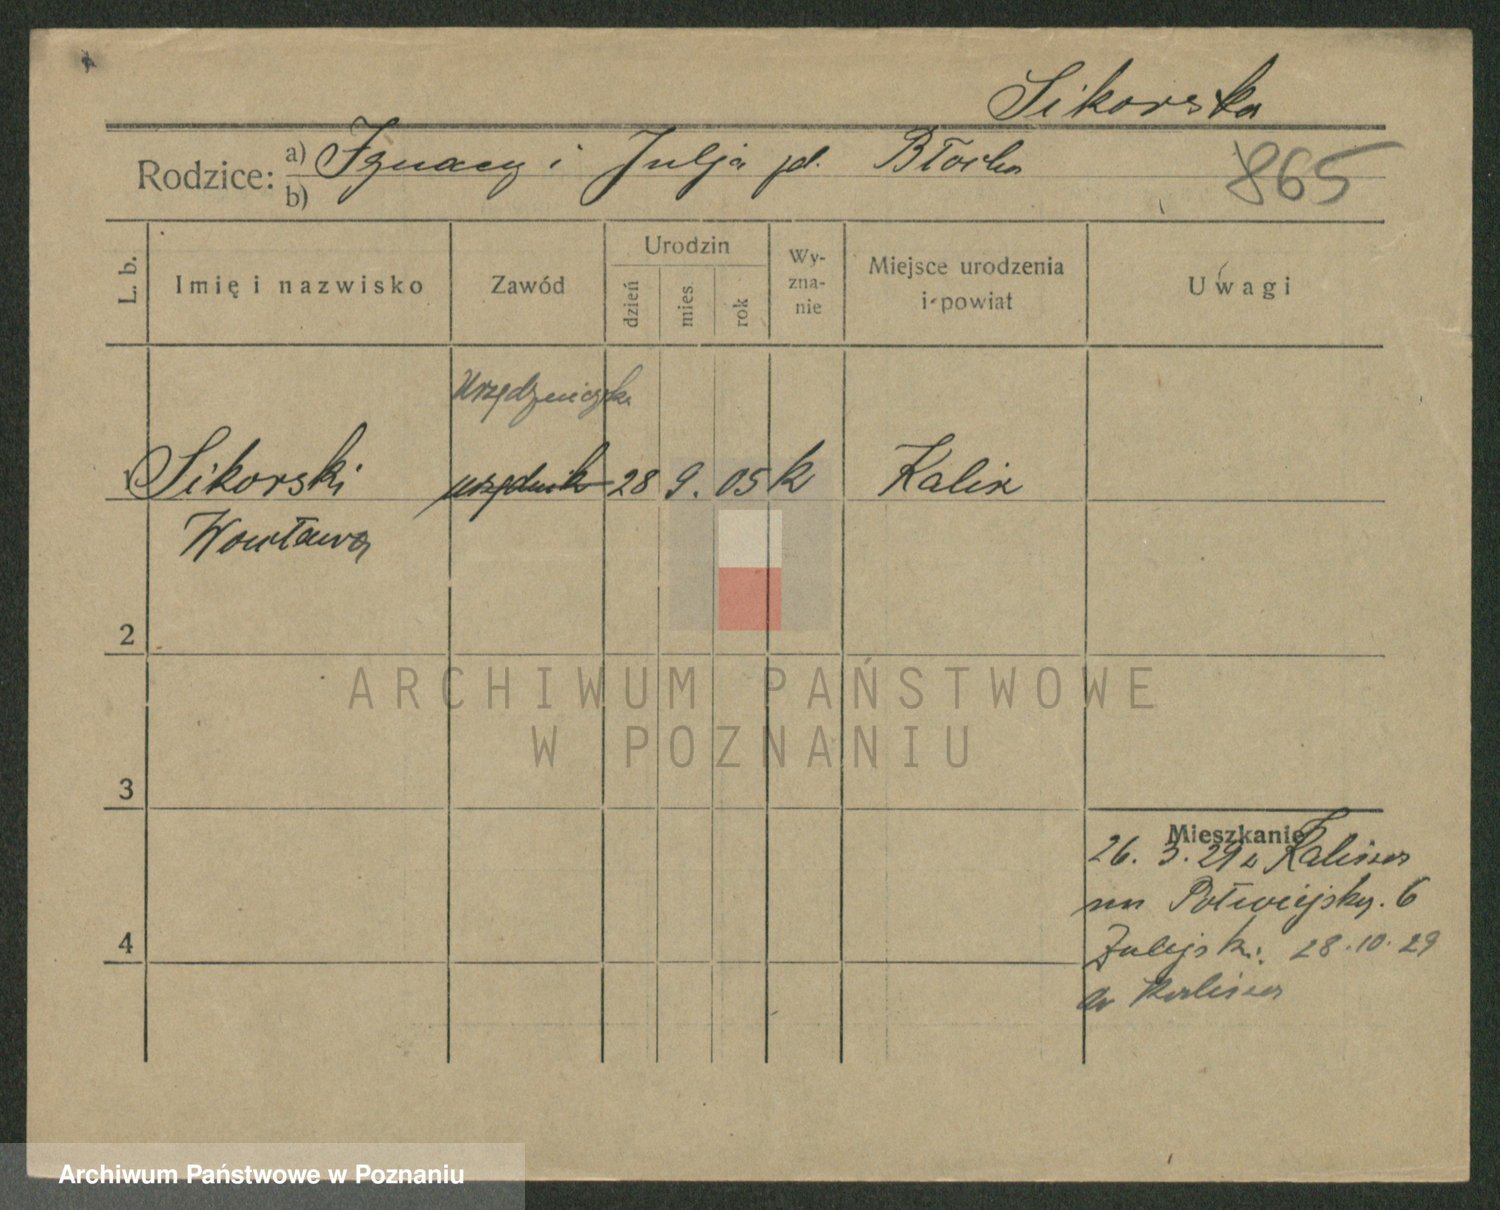 Sikorska
Rodzice: a) Ignacy i Julja zd. Błocka
b)
865
L. b.
Imię i nazwisko
Zawód
Urodzin
dzień
mies
rok
Wy-
zna-
nie
Miejsce urodzenia
i powiat
Uwagi
Urzędniczka
Sikorski urzędnik 28 9. 05 k Kalisz
Wacława
2
3
4
Mieszkanie
26. 3. 29 z Kalisza
na Półwiejską. 6
28.10.29
do Kalisza
ARCHIWUM PAŃSTWOWE
W POZNANIU
Archiwum Państwowe w Poznaniu